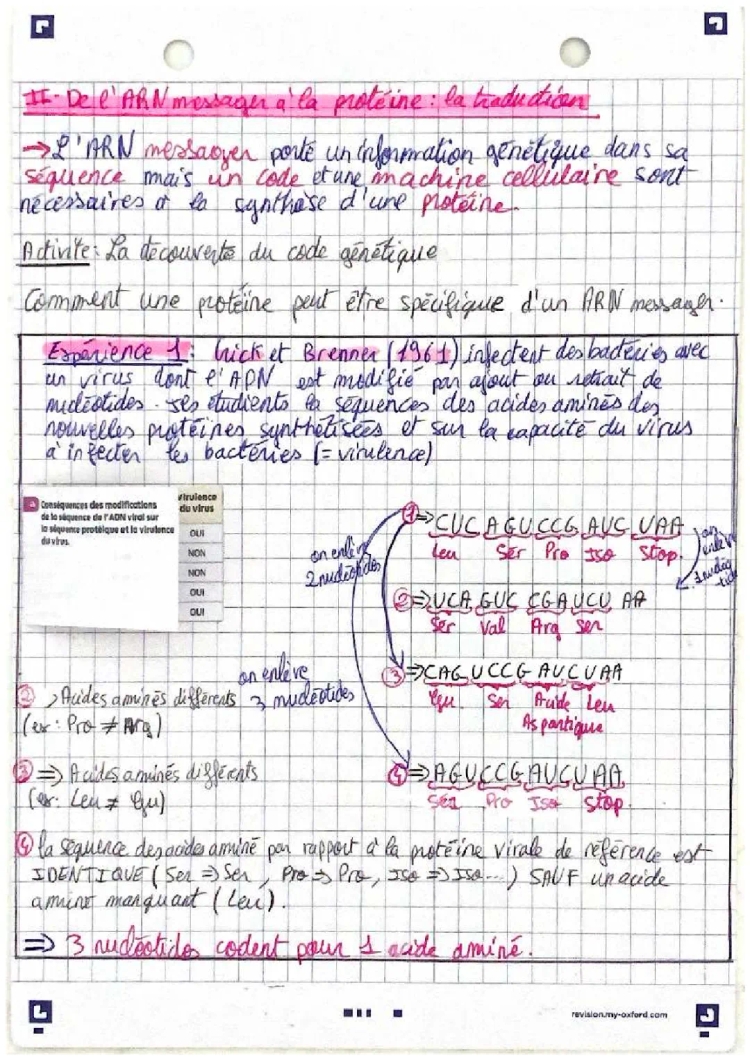 II- De l'ARN messager à la protéine : la traduction
→ L'ARN messager porte un information génétique dans sa
séquence mais un code et une machine cellulaire sont
nécessaires à la synthèse d'une protéine.
Activité : La découverte du code génétique
Comment une protéine peut être spécifique d'un ARN messager.
Expérience 1 : Crick et Brenner (1961) infectent des bactéries avec
un virus dont l'ADN est modifié par ajout ou retrait de
nucléotides. Ils étudient la séquences des acides aminés des
nouvelles protéines synthétisées et sur la capacité du virus
à infecter les bactéries (= virulence)
a Conséquences des modifications
de la séquence de l'ADN viral sur
la séquence protéique et la virulence
du virus.
Virulence
du virus
OUI
NON
NON
OUI
OUI
① ⇒ CUC AGU CCG AUC UAA
Leu Ser Pro Iso Stop.
on enlève
1 nucléotide
on enlève
2 nucléotides
② ⇒ UCA GUC CGA UCU AA
Ser Val Arg Ser
on enlève
3 nucléotides
③ ⇒ CAG UCC GAU CUA A
Glu Ser Acide Leu
Aspartique
② ⇒ Acides aminés différents
(ex : Pro ≠ Arg)
③ ⇒ Acides aminés différents
(ex : Leu ≠ Glu)
④ ⇒ AGU CCG AUC UAA
Ser Pro Iso Stop.
④ la séquence des acides aminé par rapport à la protéine virale de référence est
IDENTIQUE (Ser ⇒ Ser, Pro ⇒ Pro, Iso ⇒ Iso...) SAUF un acide
aminé manquant (Leu).
⇒ 3 nucléotides codent pour 1 acide aminé.
revision.my-oxford.com